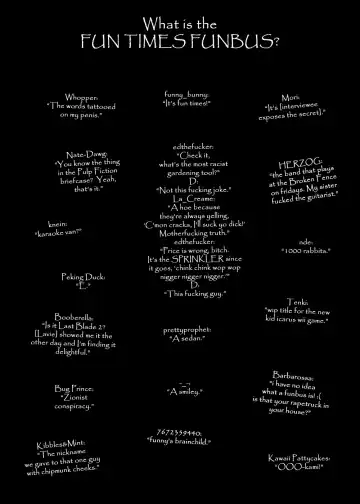 What is the
FUN TIMES FUNBUS?
Whopper:
"The words tattooed
on my penis."
funny_bunny:
"It's fun times!"
Mori:
"It's [interviewee
exposes the secret]."
Nate-Dawg:
"You know the thing
in the Pulp Fiction
briefcase? Yeah,
that's it."
edthefucker:
"Check it,
what's the most racist
gardening tool?"
D:
"Not this fucking joke."
La_Creame:
"A hoe because
they're always yelling,
'C'mon cracka, I'll suck yo dick!'
Motherfucking truth."
edthefucker:
"Price is wrong, bitch.
It's the SPRINKLER since
it goes, 'chink chink wop wop
nigger nigger nigger.'"
D:
"This fucking guy."
HERZOG:
"the band that plays
at the Broken Fence
on fridays. My sister
fucked the guitarist."
knein:
"karaoke van?"
nde:
"1000 rabbits."
Peking Duck:
"E."
Tenki:
"wip title for the new
kid icarus wii game."
Booberella:
"Is it Last Blade 2?
[Lavie] showed me it the
other day and I'm finding it
delightful."
prettyprophet:
"A sedan."
Bug Prince:
"Zionist
conspiracy."
-_-:
"A smiley."
Barbarossa:
"i have no idea
what a funbus is! :(
is that your rapetruck in
your house?"
Kibbles&Mint:
"The nickname
we gave to that one guy
with chipmunk cheeks."
7672339440:
"funny's brainchild."
Kawaii Pattycakes:
"OOO-kami!"